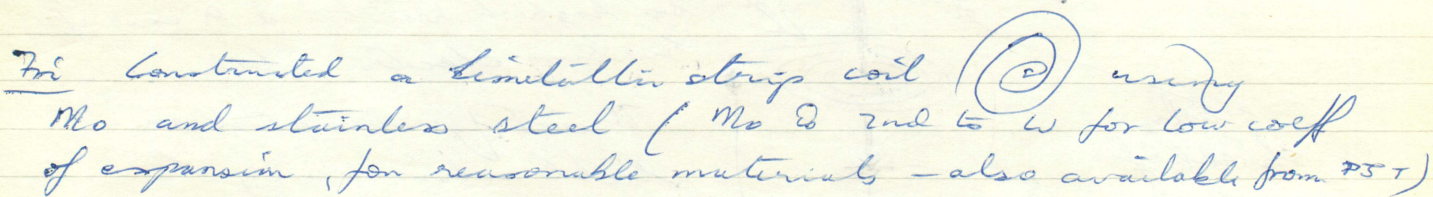 Fri Constructed a bimetallic strip coil ( ) using
Mo and stainless steel ( Mo is 2nd to W for low coeff
of expansion, for reasonable materials – also available from PST)